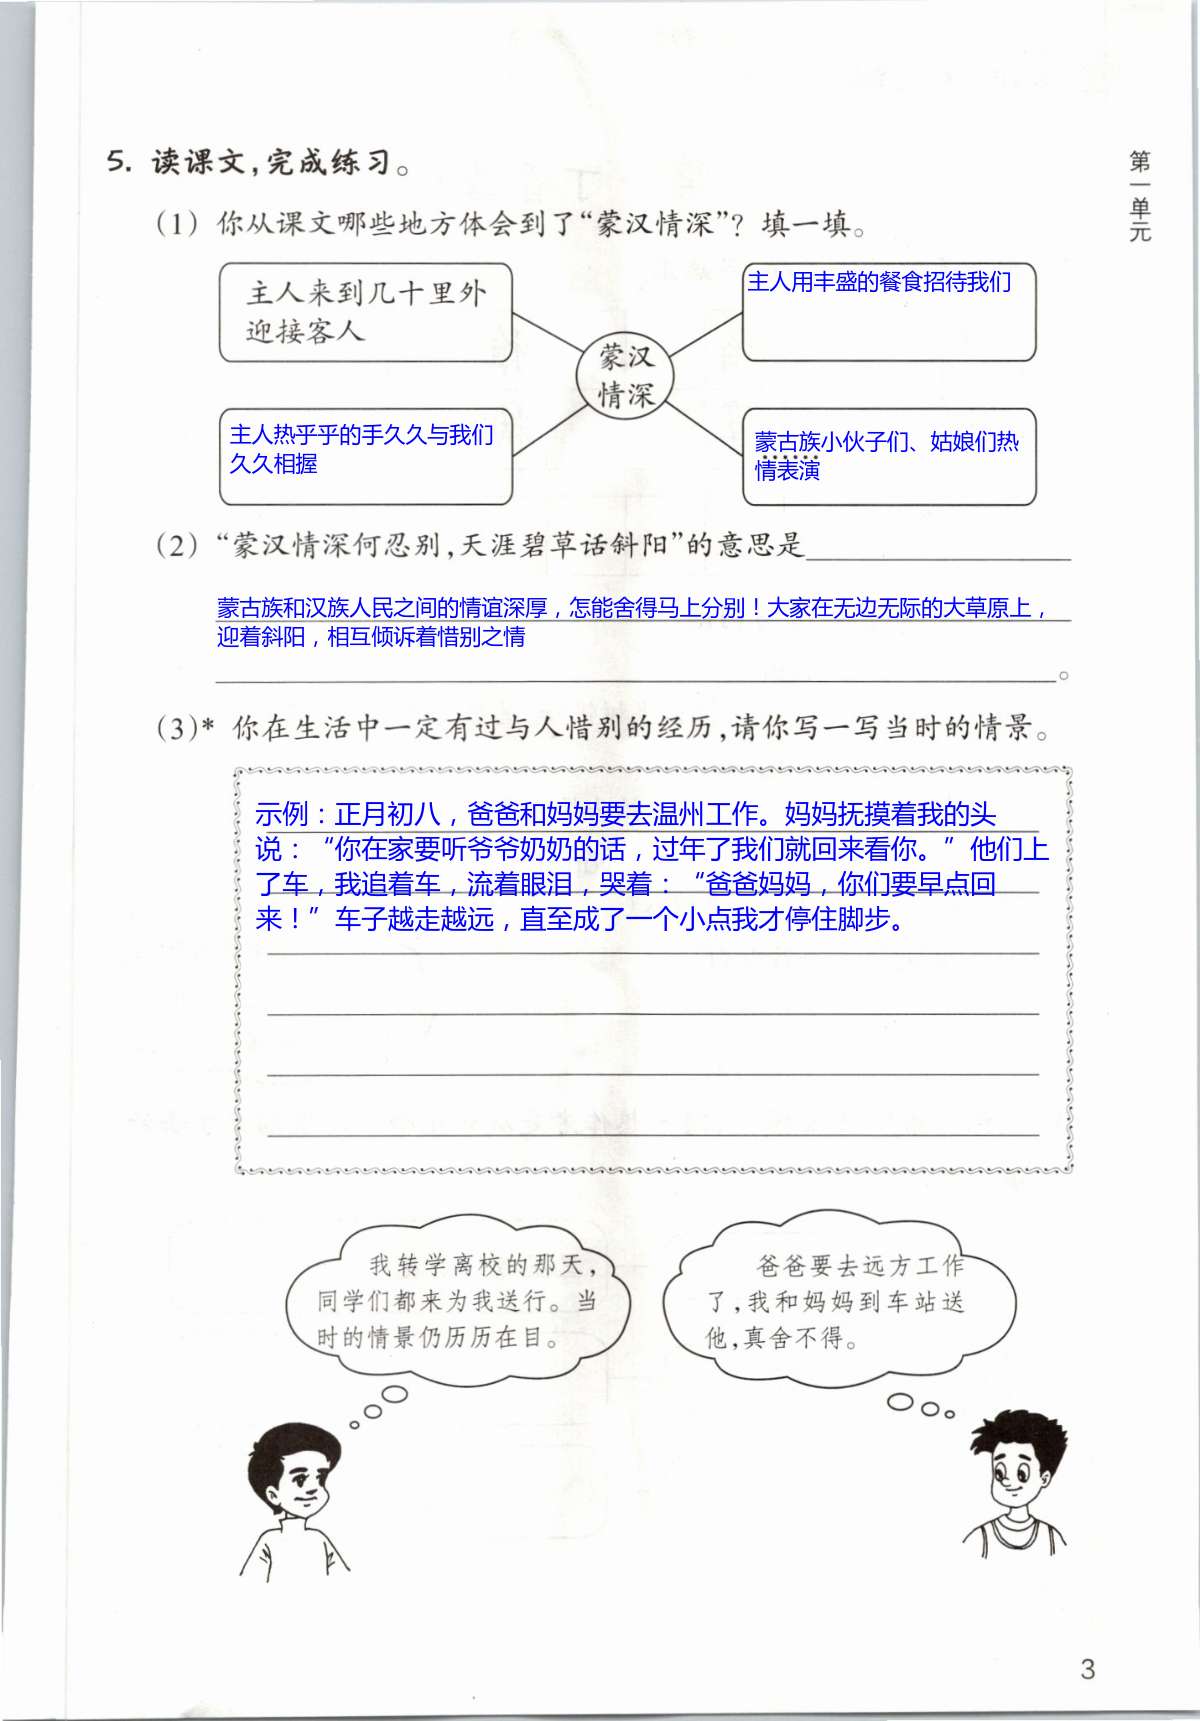 第一单元
5. 读课文,完成练习。
(1) 你从课文哪些地方体会到了“蒙汉情深”? 填一填。
主人来到几十里外
迎接客人
主人用丰盛的餐食招待我们
蒙汉
情深
主人热乎乎的手久久与我们
久久相握
蒙古族小伙子们、姑娘们热
情表演
......
(2) “蒙汉情深何忍别,天涯碧草话斜阳”的意思是
蒙古族和汉族人民之间的情谊深厚，怎能舍得马上分别！大家在无边无际的大草原上，
迎着斜阳，相互倾诉着惜别之情
。
(3)* 你在生活中一定有过与人惜别的经历,请你写一写当时的情景。
示例：正月初八，爸爸和妈妈要去温州工作。妈妈抚摸着我的头
说：“你在家要听爷爷奶奶的话，过年了我们就回来看你。”他们上
了车，我追着车，流着眼泪，哭着：“爸爸妈妈，你们要早点回
来！”车子越走越远，直至成了一个小点我才停住脚步。
我转学离校的那天,
同学们都来为我送行。当
时的情景仍历历在目。
爸爸要去远方工作
了,我和妈妈到车站送
他,真舍不得。
3